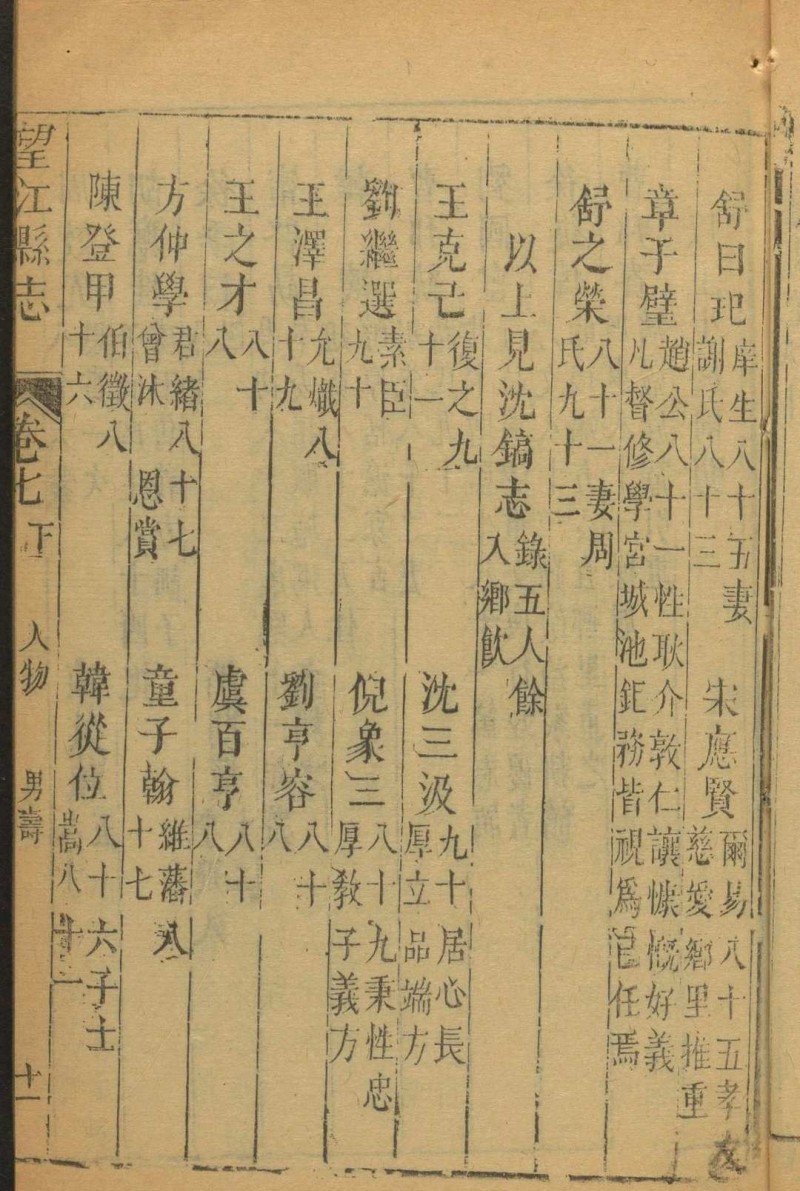 舒曰玘庠生八十五妻謝氏八十三　宋應賢爾易八十五孝友慈愛鄉里推重
章子璧趙公八十一性耿介敦仁讓慷慨好義凡督修學宮城池鉅務皆視爲己任焉
舒之榮八十一妻周氏九十三
以上見沈鎬志錄五人餘入鄉飲
王克己復之九十一　沈三汲九十居心長厚立品端方
劉繼選素臣九十　倪象三八十九秉性忠厚教子義方
王澤昌允熾八十九　劉亨容八十八
王之才八十八　虞百亨八十八
方仲學君緒八十七曾沐恩賞　童子翰維藩八十七
陳登甲伯徵八十六　韓從位八十六子士嵩八十一
望江縣志　卷七下　人物　男壽　十一